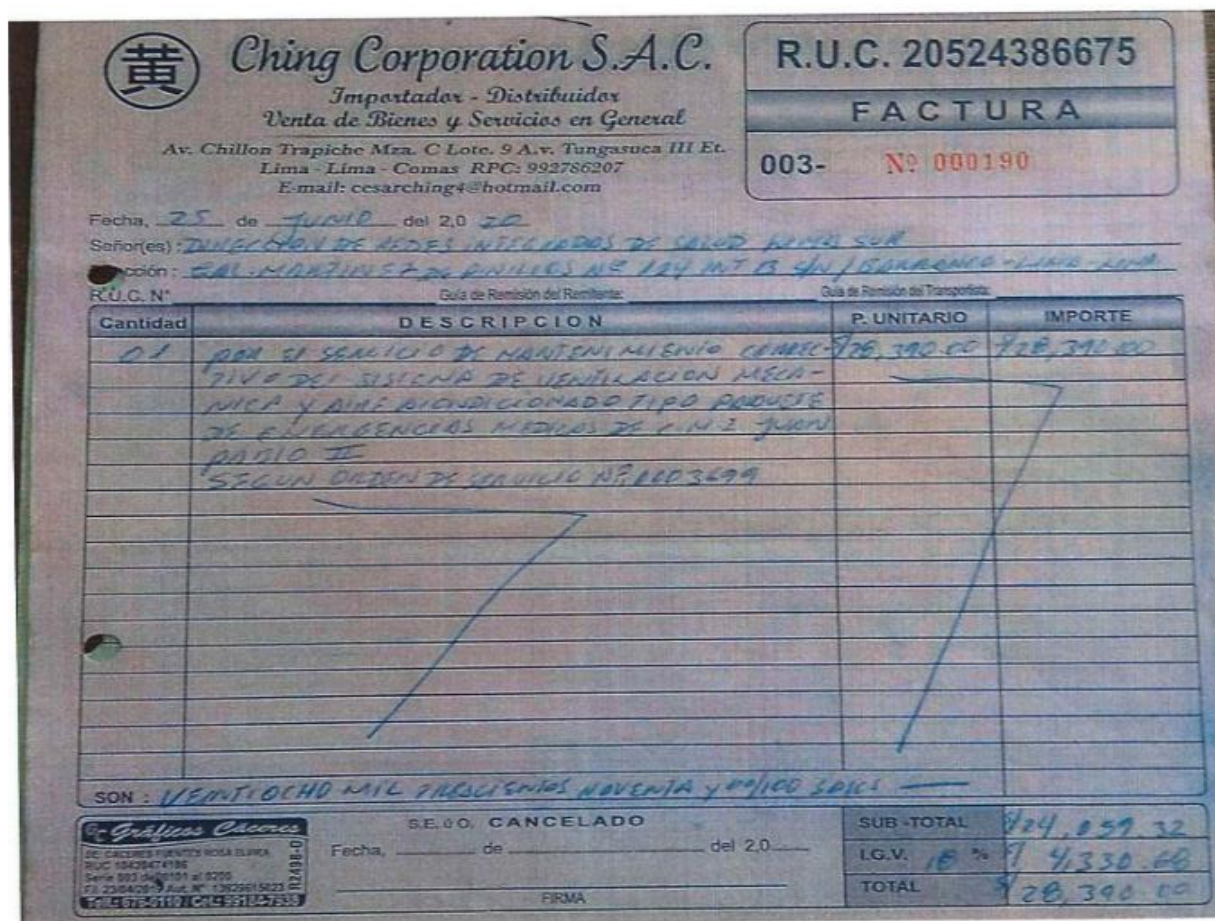 黄
Ching Corporation S.A.C.
Importador - Distribuidor
Venta de Bienes y Servicios en General
Av. Chillon Trapiche Mza. C Lote. 9 A.v. Tungasuca III Et.
Lima - Lima - Comas RPC: 992786207
E-mail: cesarching4@hotmail.com
R.U.C. 20524386675
FACTURA
003- Nº 000190
Fecha, 25 de JUNIO del 2,0 20
Señor(es) : DIRECCION DE REDES INTEGRADAS DE SALUD LIMA SUR
cción : CAL. MARTINEZ DE PINILLOS Nº 124 INT B S/N / BARRANCO - LIMA - LIMA
R.U.C. N° Guía de Remisión del Remitente: Guía de Remisión del Transportista:
Cantidad DESCRIPCION P. UNITARIO IMPORTE
01 POR EL SERVICIO DE MANTENIMIENTO CORREC- 28,390.00 28,390.00
TIVO DEL SISTEMA DE VENTILACION MECA-
NICA Y AIRE ACONDICIONADO TIPO
DE EMERGENCIAS MEDICAS DE C.M.I JUAN
PABLO II
SEGUN ORDEN DE SERVICIO Nº 0003699
SON : VEINTIOCHO MIL TRESCIENTOS NOVENTA Y 00/100 SOLES
Gráficos Cáceres
DE: CACERES FUENTES ROSA ELVIRA
RUC 10420474186
Serie 003 del 0101 al 0200
F.I. 23/04/2019 Aut. N° 13929615023
R2498-O
S.E. ó O. CANCELADO
Fecha, de del 2,0
FIRMA
SUB-TOTAL 24,059.32
I.G.V. 18 % 4,330.68
TOTAL 28,390.00